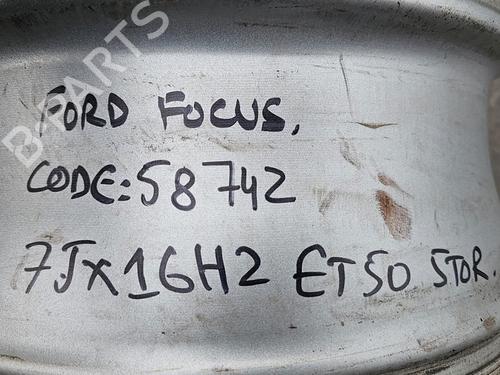 B-PARTS
FORD FOCUS.
CODE: 58742
7Jx16H2 ET50 STOR.